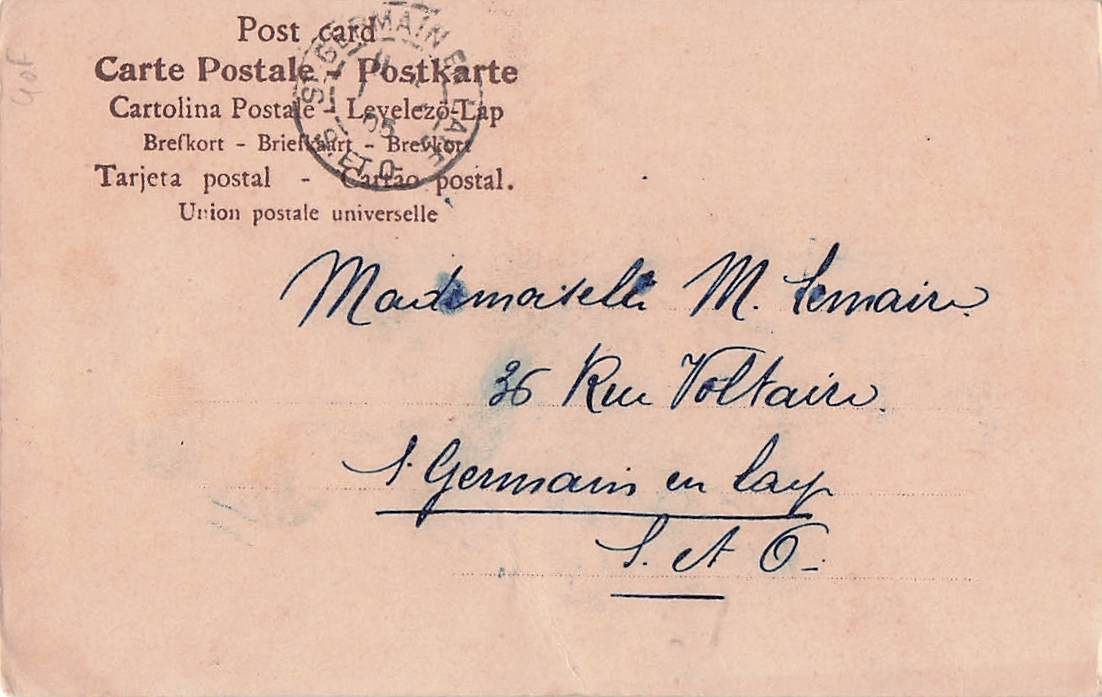 Post card
Carte Postale - Postkarte
Cartolina Postale - Levelezö-Lap
Brefkort - Briefkaart - Brevkort
Tarjeta postal - Cartão postal.
Union postale universelle
ST GERMAIN EN LAYE
05
S. ET O.
Mademoiselle M. Lemaire
36 Rue Voltaire
S. Germain en Laye
S. et O.